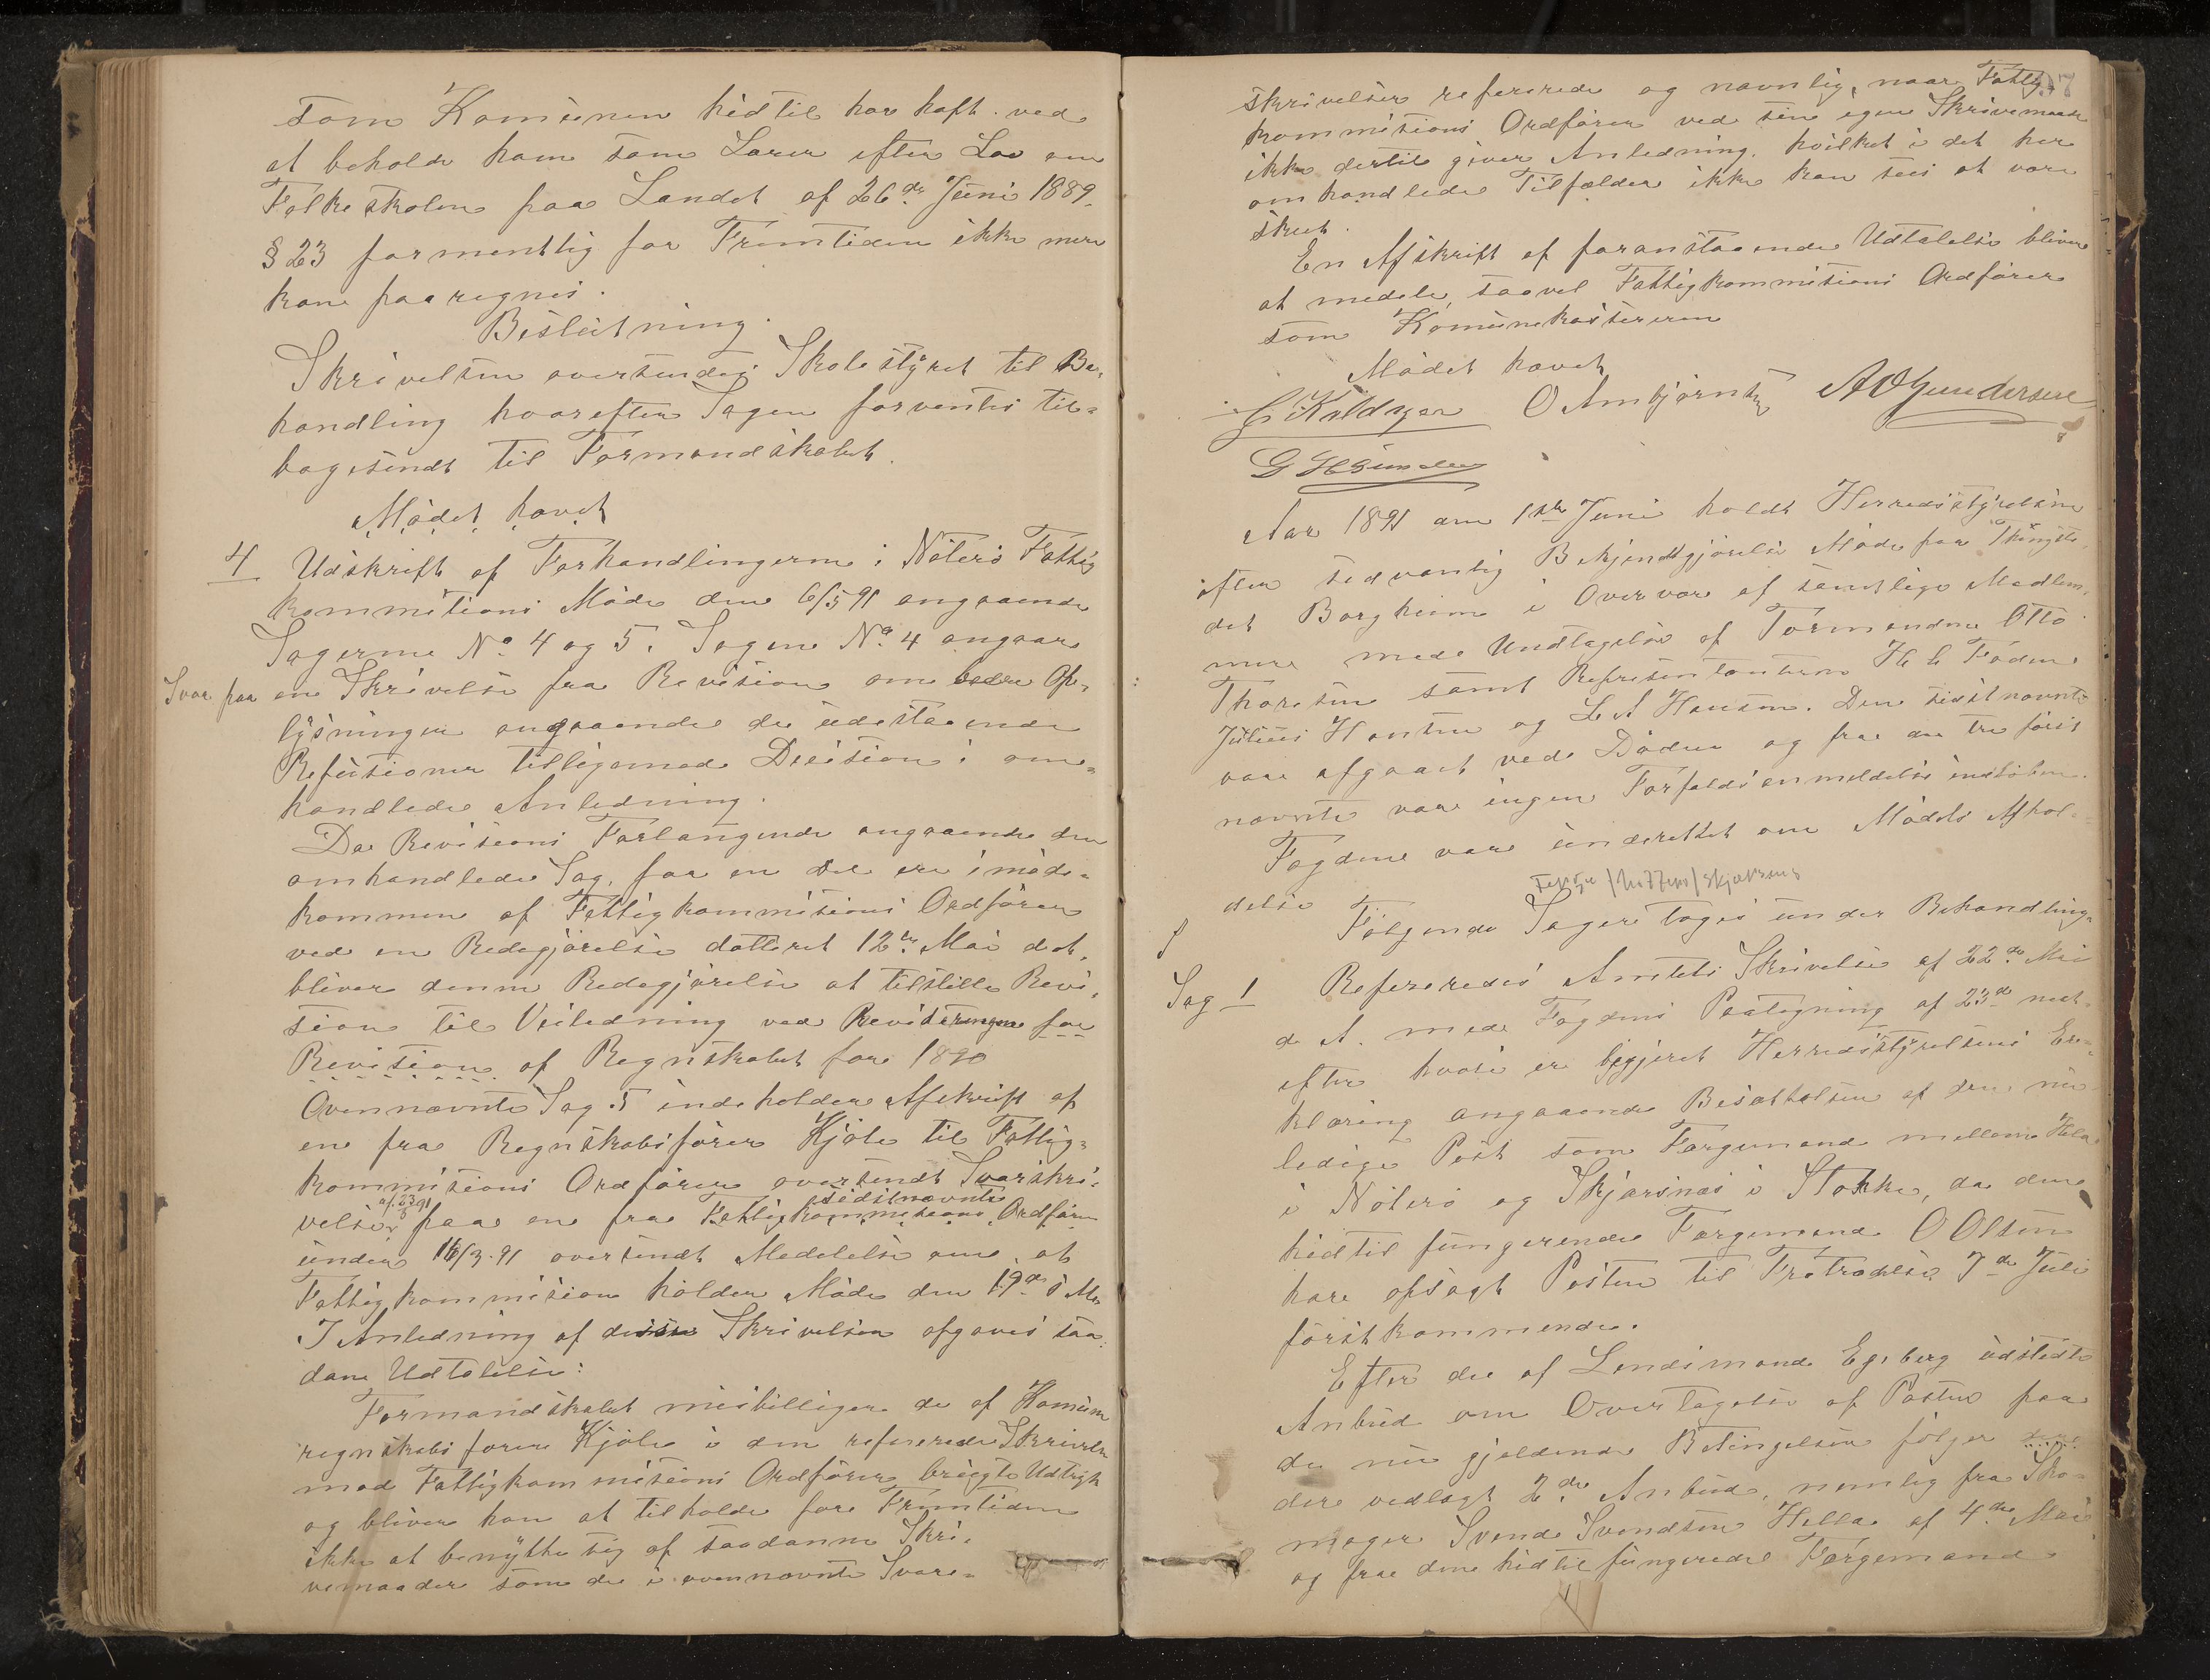 som Komunen hidtil har haft ved
at beholde ham som Lærer efter Lov om
Folkeskolen paa Landet af 26de Juni 1889.
§ 23 formentlig for Fremtiden ikke mere
kan paaregnes.
Beslutning.
Skrivelsen oversendes Skolestyret til Be-
handling hvorefter Sagen forventes til-
bagesendt til Formandskabet.
Mødet hævet
4 Udskrift af Forhandlingerne i Nøterø Fattig
kommissions Møde den 6/5 91 angaaende
Sagerne No 4 og 5. Sagen No 4 angaar
Svar paa en Skrivelse fra Revision om Op-
lysninger angaaende de udestaaende
Refusioner tilligemed Decision i om-
handlede Anledning.
Da Revisions Forlangende angaaende den
omhandlede Sag, for en Del er imøde-
kommen af Fattigkommissions Ordfører
ved en Redegjørelse datteret 12te Mai d.A.
bliver denne Redegjørelse at tilstille Revi-
sion til Veiledning ved Revideringen for
Revision af Regnskabet for 1890
Ovennævnte Sag 5 indeholder Afskrift af
en fra Regnskabsfører Kjøle til Fattig-
kommissions Ordfører oversendt Svarskri-
af 23/3 91 sidstnævnte
velse paa en fra Fattigkommissions Ordfører
under 16/3.91 oversendt Meddelelse om at
Fattigkommision holder Møde den 19de s M.
I Anledning af disse Skrivelser afgaves saa-
dan Udtalelse:
Formandskabet misbilliger de af Komune
regnskabsfører Kjøle i den refererede Skrivelse
mod Fattigkommissions Ordfører brugte Udtryk
og bliver han at tilholde for Fremtiden
ikke at benytte sig af saadanne Skri-
vemaader som de i ovennævnte Svars-
97
skrivelser refererede og navnlig, naar Fattig-
kommissions Ordfører ved sin egen Skrivemaade
ikke dertil giver Anledning, hvilket i det her
omhandlede Tilfælde ikke kan sees at være
skeet.
En Afskrift af foranstaaende Udtalelse bliver
at meddele, saavel Fattigkommissions Ordfører
som Komunekassereren
Mødet hævet
C Kaldager O Ambjørnsen A O Gundersen
Aar 1891 den 1ste Juni holdt Herredsstyrelsen
efter sedvanlig Bekjendtgjørelse Møde paa Thingste-
det Borgheim i Overvær af samtlige Medlem-
mer med Undtagelse af Formændene Otto
Thoresen samt Repræsentanterne H C Foden
Julius Hansen og L A Hansen. Den sidstnævnte
var afgaaet ved Døden og fra de tre først
nævnte var ingen Forfaldsanmeldelse indløben.
Fogden var underrettet om Mødets Afhol-
delse
Følgende Sager toges under Behandling.
Sag 1 Refereredes Amtets Skrivelse af 22de Mai
d A. med Fogdens Paategning af 23de næst-
efter hvori er begjæret Herredsstyrelsens Er-
klæring angaaende Besættelsen af den nu
ledige Post som Færgemand mellem Hella
i Nøterø og Skjærsnæs i Stokke, da den
hidtil fungerende Færgemand O Olsen
har opsagt Posten til Fratrædelse 7de Juli
førstkommende.
Efter de af Lensmand Egeberg udstedte
Anbud om Overtagelse af Posten paa
de nu gjeldende Betingelser følger
der vedlagt 2de Anbud, nemlig fra Sko-
mager Svend Svendsen Hella af 4de Mai
og fra den hidtil fungerede Færgemand